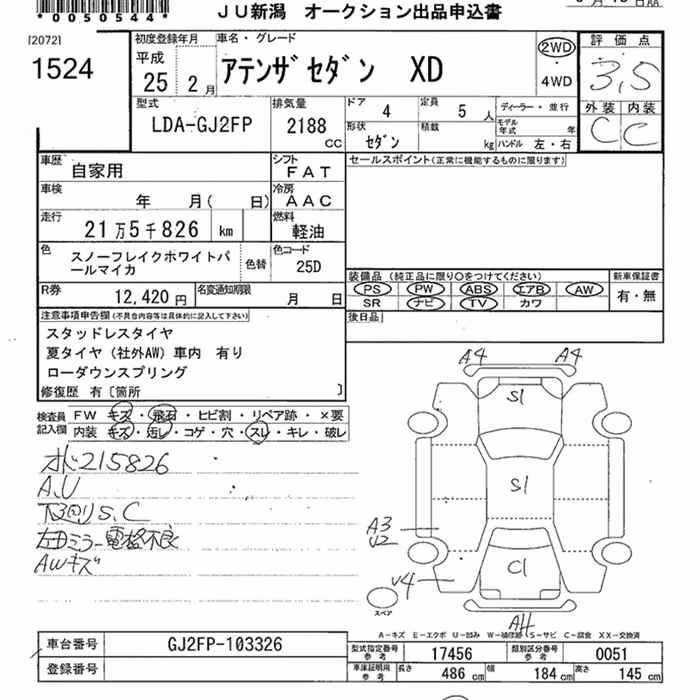 *0050544*
JU新潟 オークション出品申込書
[2072]
1524
初度登録年月
平成
25 2月
車名・グレード
アテンザ セダン XD
2WD
・
4WD
評価点
3.5
外装 内装
C C
型式
LDA-GJ2FP
排気量
2188
CC
ドア 4
定員 5人
形状 セダン
積載 kg
ディーラー・並行
モデル年式 年
ハンドル 左・右
車歴 自家用
シフト FAT
セールスポイント(正常に機能するものに限ります)
車検 年 月( 日)
冷房 AAC
走行 21万5千826 km
燃料 軽油
色 スノーフレイクホワイトパールマイカ
色替
色コード 25D
装備品(純正品に限り○をつけてください)
新車保証書
PS PW ABS エアB AW
SR ナビ TV カワ
有・無
R券 12,420円
名変通知期限 月 日
後日品
注意事項申告欄(不具合内容等は具体的に記入して下さい)
スタッドレスタイヤ
夏タイヤ(社外AW)車内 有り
ローダウンスプリング
修復歴 有〔箇所 〕
検査員記入欄
FW キズ・飛石・ヒビ割・リペア跡・×要
内装 キズ・汚レ・コゲ・穴・スレ・キレ・破レ
215826
A,U
下回りS,C
左田ミラー電格不良
AWキズ
A4 A4
S1
S1
A3
U2
C1
V4
スペア
A4
A-キズ E-エクボ U-凹み W-補修跡 S-サビ C-腐食 XX-交換済
車台番号 GJ2FP-103326
登録番号
型式指定番号 参考 17456
類別区分番号 参考 0051
車庫証明用 参考 長さ 486cm 幅 184cm 高さ 145cm